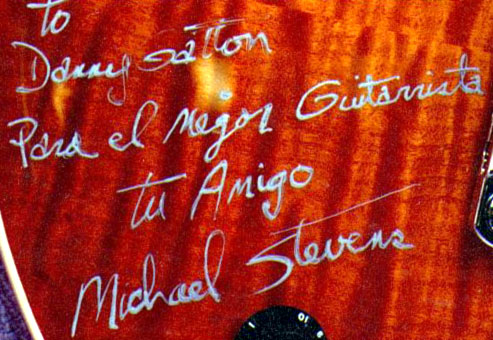 to
Danny Gatton
Para el Mejor Guitarrista
tu Amigo
Michael Stevens
1 10